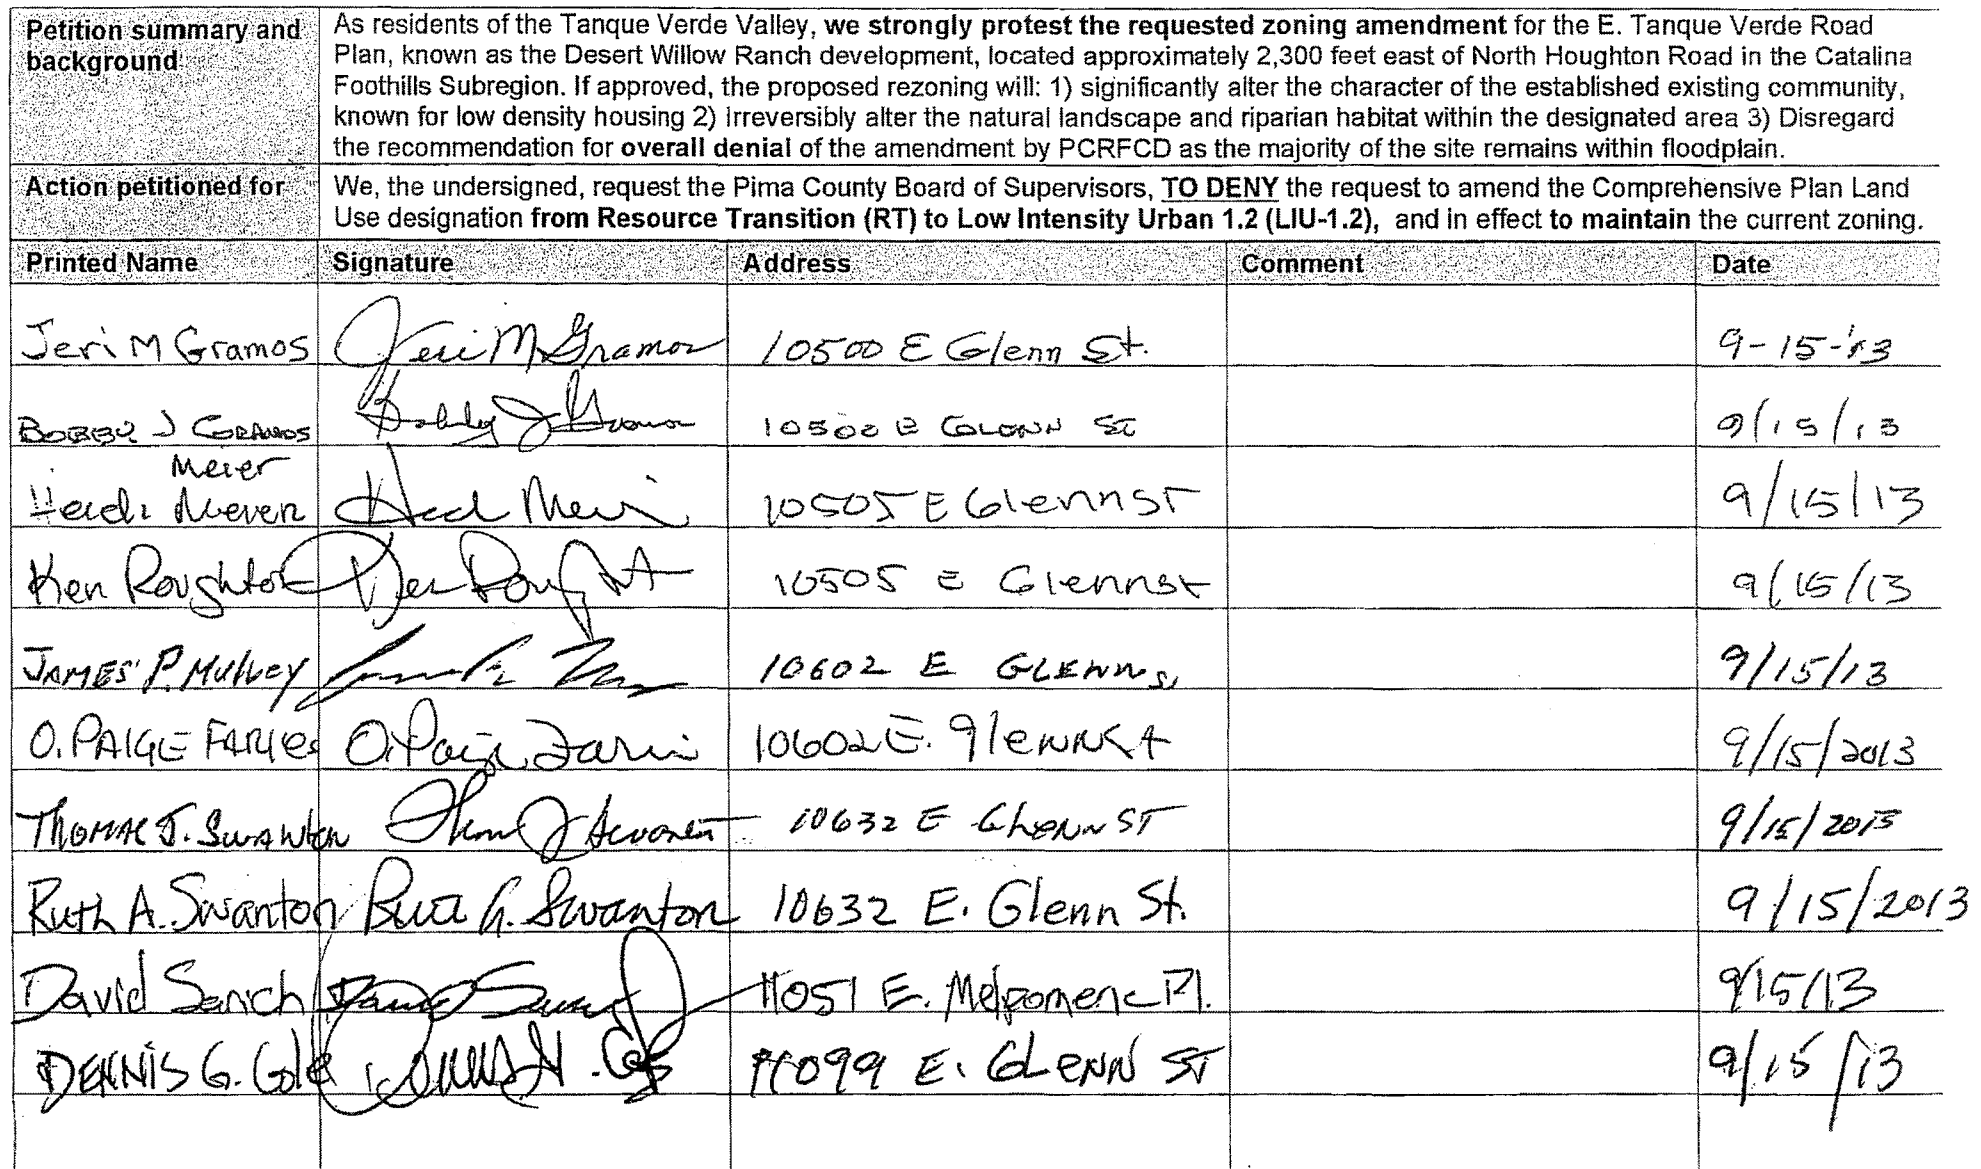 Petition summary and background
As residents of the Tanque Verde Valley, we strongly protest the requested zoning amendment for the E. Tanque Verde Road
Plan, known as the Desert Willow Ranch development, located approximately 2,300 feet east of North Houghton Road in the Catalina
Foothills Subregion. If approved, the proposed rezoning will: 1) significantly alter the character of the established existing community,
known for low density housing 2) Irreversibly alter the natural landscape and riparian habitat within the designated area 3) Disregard
the recommendation for overall denial of the amendment by PCRFCD as the majority of the site remains within floodplain.
Action petitioned for
We, the undersigned, request the Pima County Board of Supervisors, TO DENY the request to amend the Comprehensive Plan Land
Use designation from Resource Transition (RT) to Low Intensity Urban 1.2 (LIU-1.2), and in effect to maintain the current zoning.
Printed Name Signature Address Comment Date
Jeri M Gramos Jeri M Gramos 10500 E Glenn St. 9-15-13
BOBBY J GRAMOS Bobby J Gramos 10500 E GLENN ST 9/15/13
Meier
Heidi 10505 E Glenn ST 9/15/13
Ken Roughton 10505 E Glenn st 9/15/13
JAMES P. MULVEY 10602 E GLENN 9/15/13
O. PAIGE FARIES O. Paige Faries 10602 E. Glenn St 9/15/2013
THOMAS J. SWANTON Thomas J Swanton 10632 E GLENN ST 9/15/2013
Ruth A. Swanton Ruth A. Swanton 10632 E. Glenn St. 9/15/2013
David Senich 11051 E. Melpomene Pl. 9/15/13
DENNIS G. Cole Dennis G. Cole 11099 E. GLENN ST 9/15/13